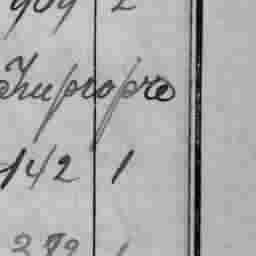 909 2
Impropre
142 1
382 1